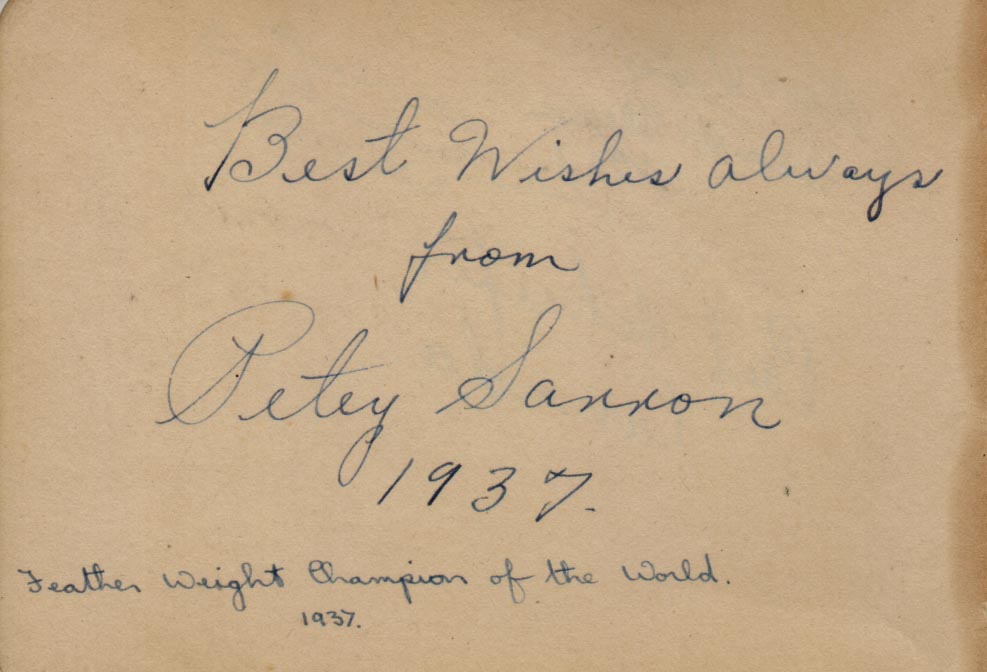 Best Wishes always
from
Petey Sarron
1937.
Feather Weight Champion of the World.
1937.